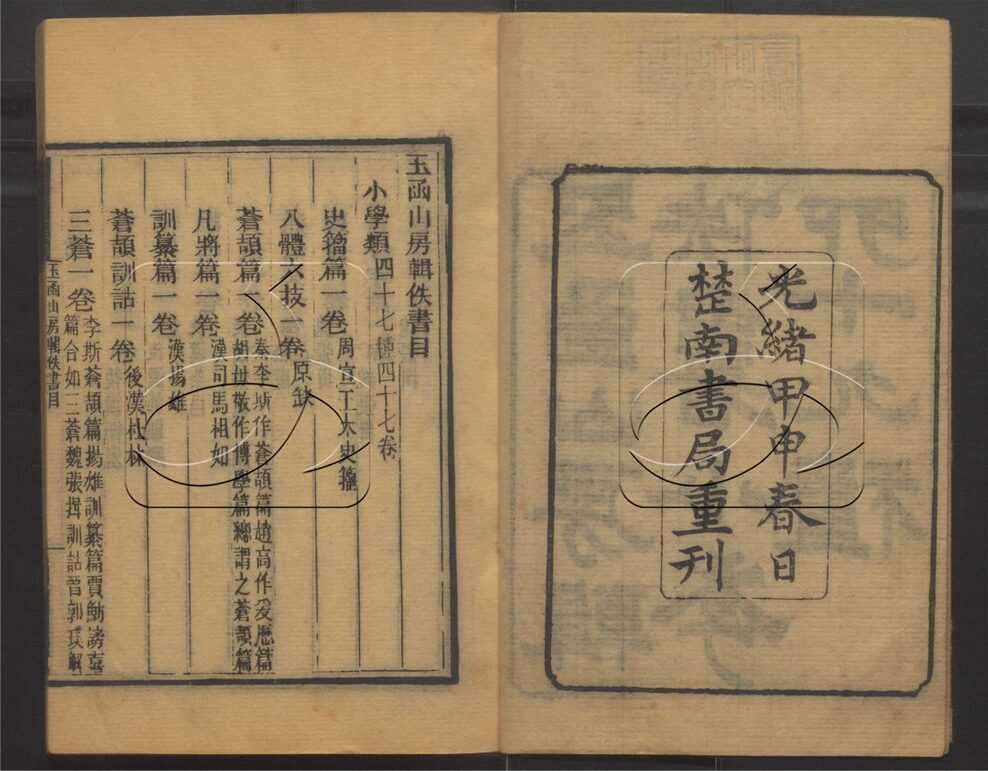 光緒甲申春日
楚南書局重刊
玉函山房輯佚書目
小學類四十七種四十七卷
史籀篇一卷 周宣王太史籀
八體六技一卷 原缺
蒼頡篇一卷 秦李斯作蒼頡篇趙高作爰歷篇
胡毋敬作博學篇總謂之蒼頡篇
凡將篇一卷 漢司馬相如
訓纂篇一卷 漢揚雄
蒼頡訓詁一卷 後漢杜林
三蒼一卷 李斯蒼頡篇揚雄訓纂篇賈魴滂喜
篇合如三蒼魏張揖訓詁晉郭璞解
玉函山房輯佚書目